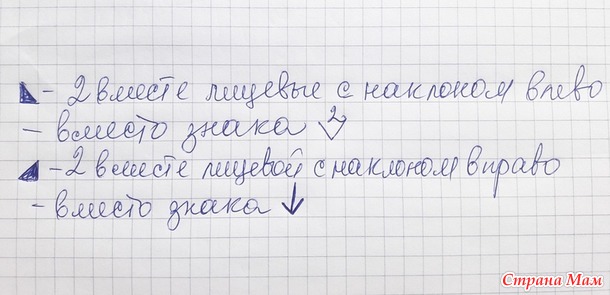 ◣ - 2 вместе лицевые с наклоном влево
- вместо знака 2
◢ - 2 вместе лицевой с наклоном вправо
- вместо знака ↓
Страна Мам